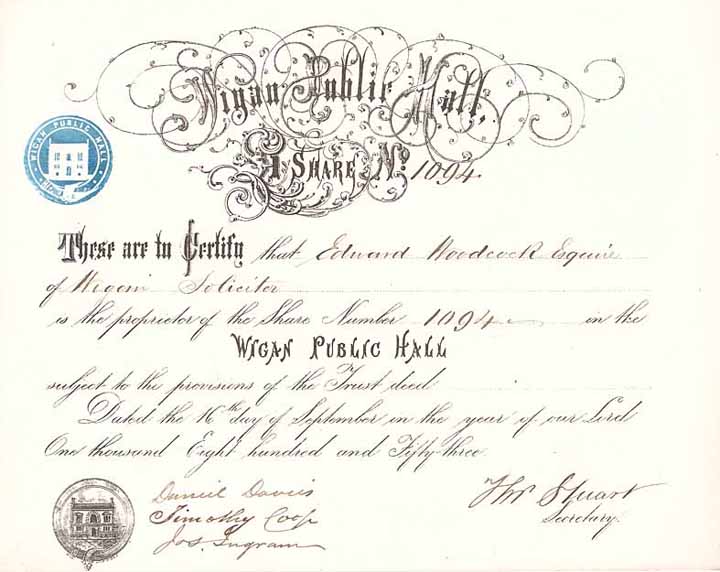 Wigan Public Hall.
WIGAN PUBLIC HALL
£1 SHARE No. 1094.
These are to Certify that Edward Woodcock Esquire
of Wigan Solicitor
is the proprietor of the Share Number 1094 in the
WIGAN PUBLIC HALL
subject to the provisions of the Trust deed
Dated the 16th day of September in the year of our Lord
One thousand Eight hundred and Fifty-three.
Daniel Davies
Timothy Coop
Jos. Ingram
Thos Stuart
Secretary.